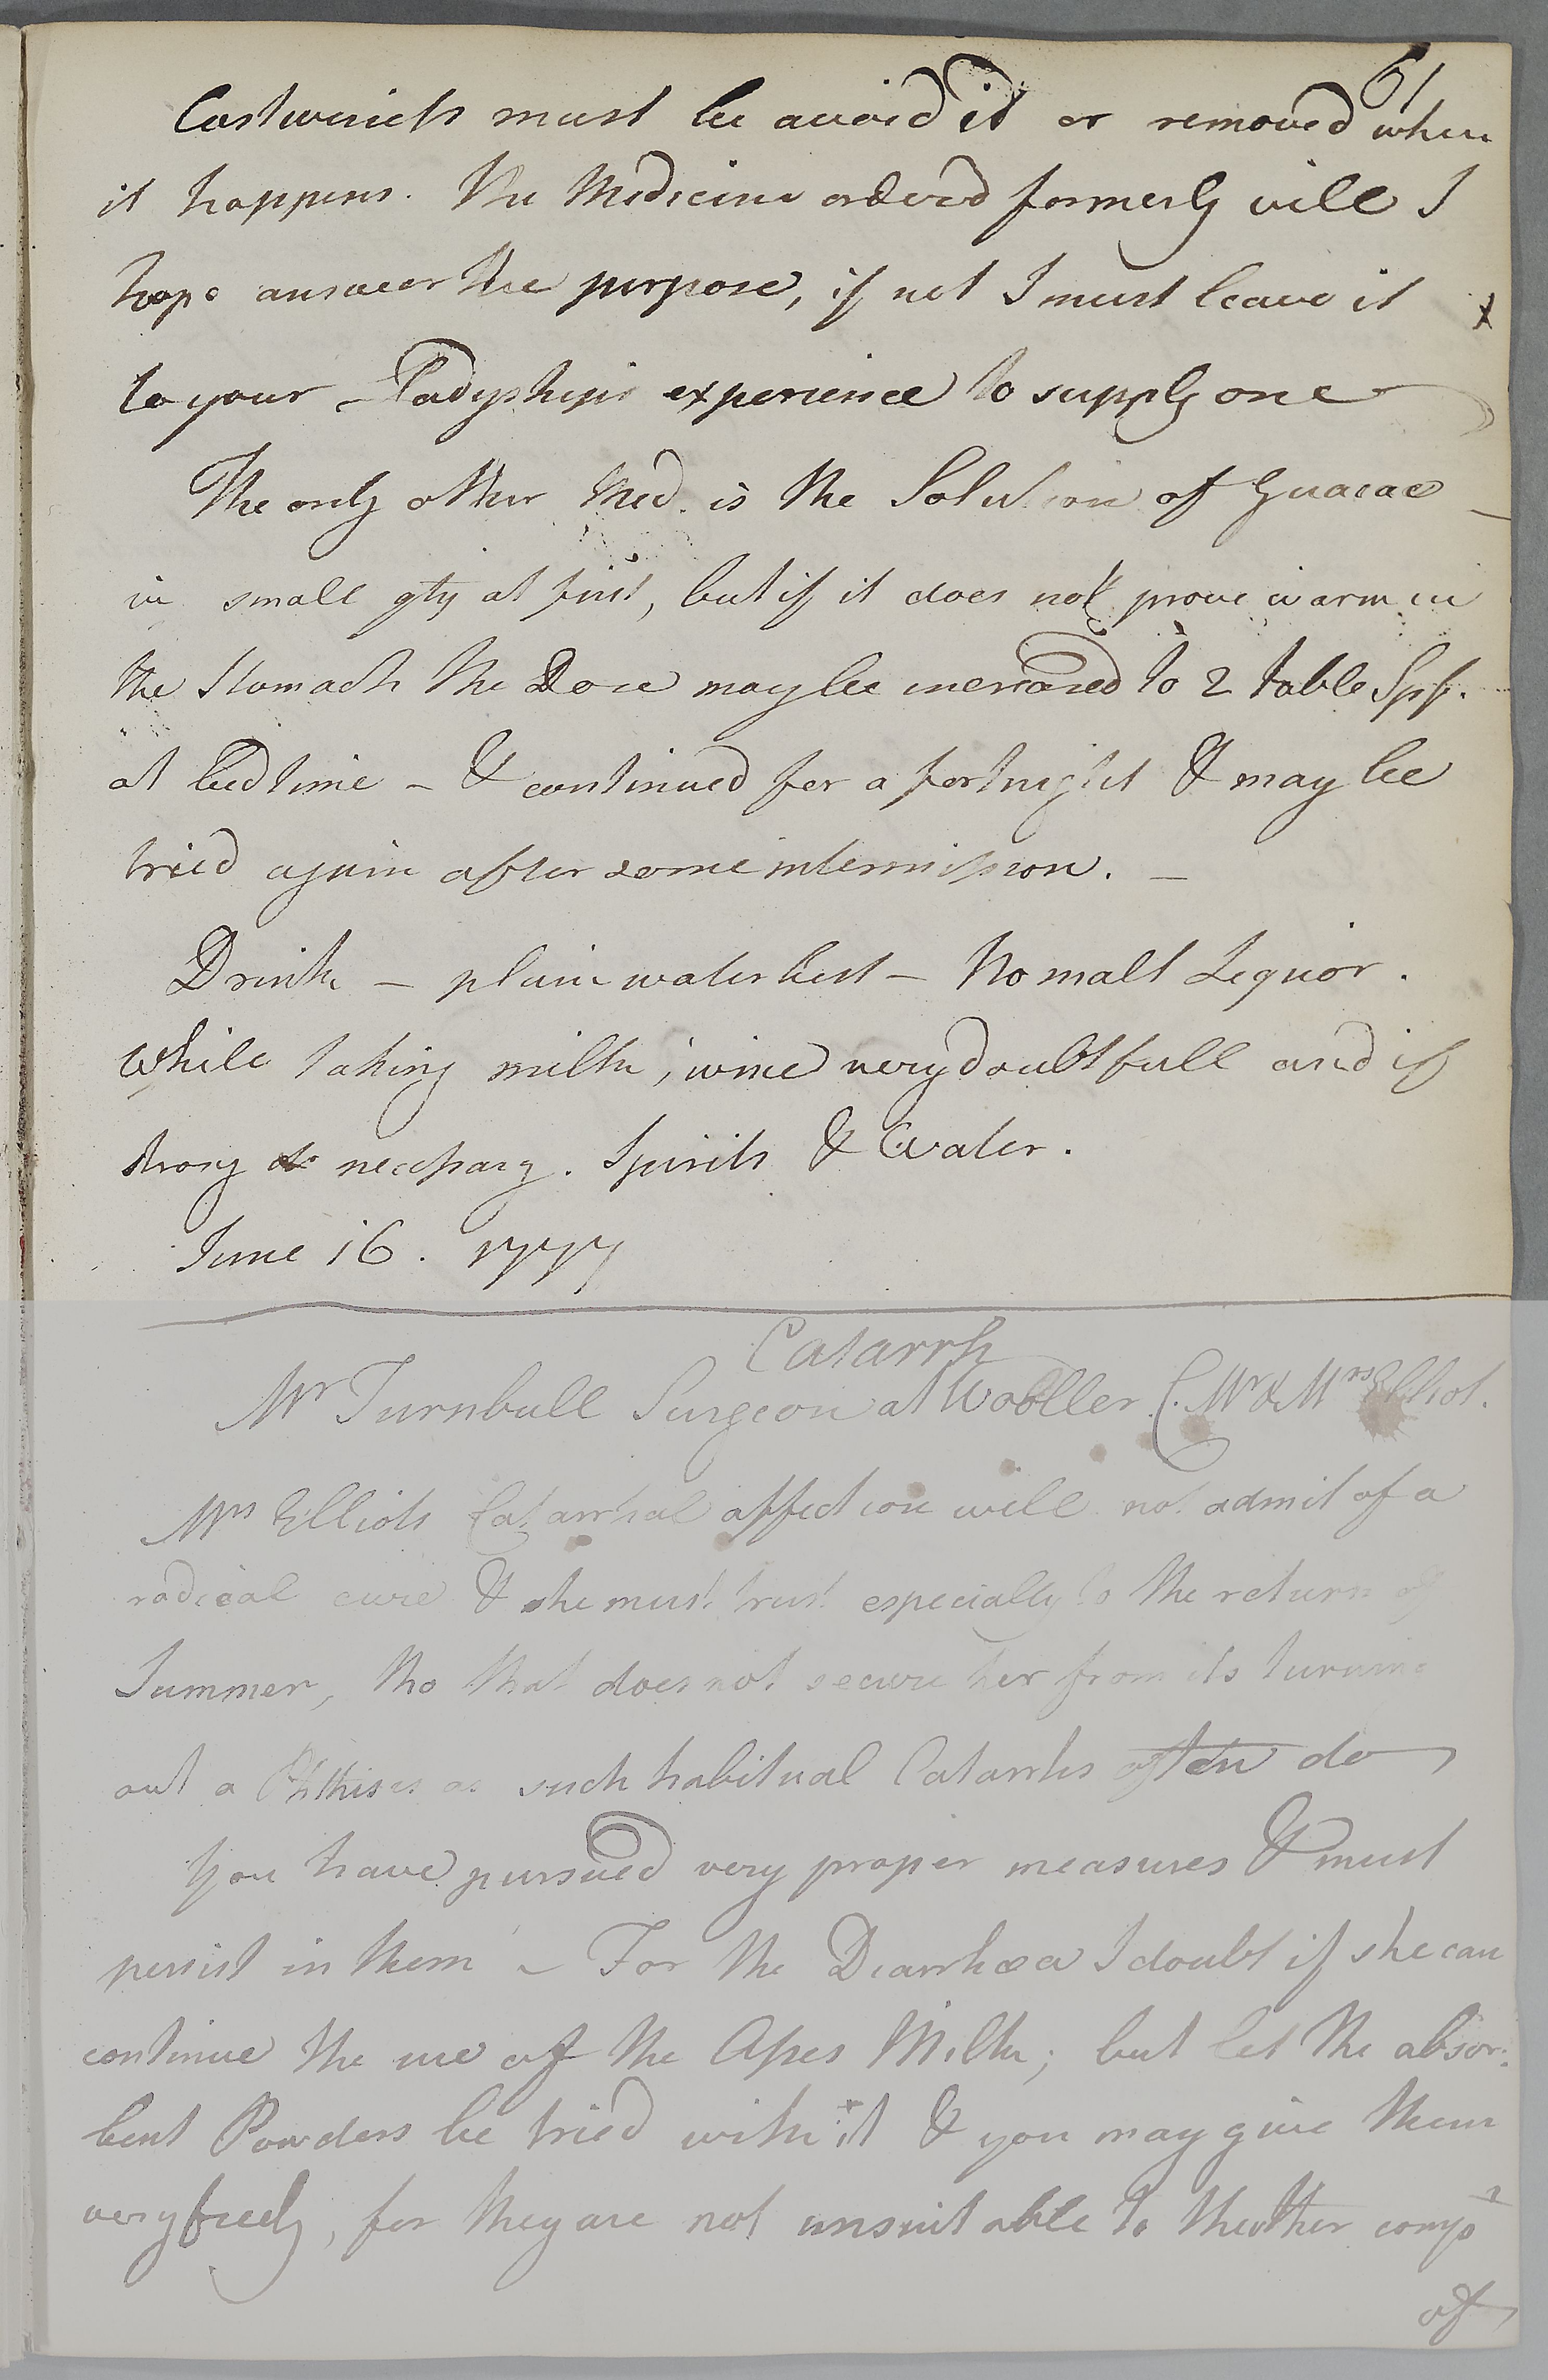 61
Costiveness must be avoided or removed when
it happens. The Medicine ordered formerly will I
hope answer the purpose, if not I must leave it
to your Ladyships experience to supply one
The only other Med. is the Solution of Guaiac
in small qty at first, but if it does not prove warm in
the Stomach the Dose may be increased to 2 table Spf.
at bedtime - & continued for a fortnight & may be
tried again after some intermission. -
Drink - plain water best - No malt Liquor.
while taking milk; wine very doubtfull and if
strong necessary. Spirits & Water.
June 16. 1777
Catarrh
Mr Turnbull Surgeon at Wooller C. Mr & Mrs Elliot.
Mrs Elliots Catarrhal affection will not admit of a
radical cure & she must trust especially to the return of
Summer, tho that does not secure her from its turning
out a Phthisis as such habitual Catarrhs often do
You have pursued very proper measures & must
persist in them - For the Diarrhœa I doubt if she can
continue the use of the Asses Milk; but let the absor:
bent Powders be tried with it & you may give them
very freely, for they are not unsuitable to the other compt
of